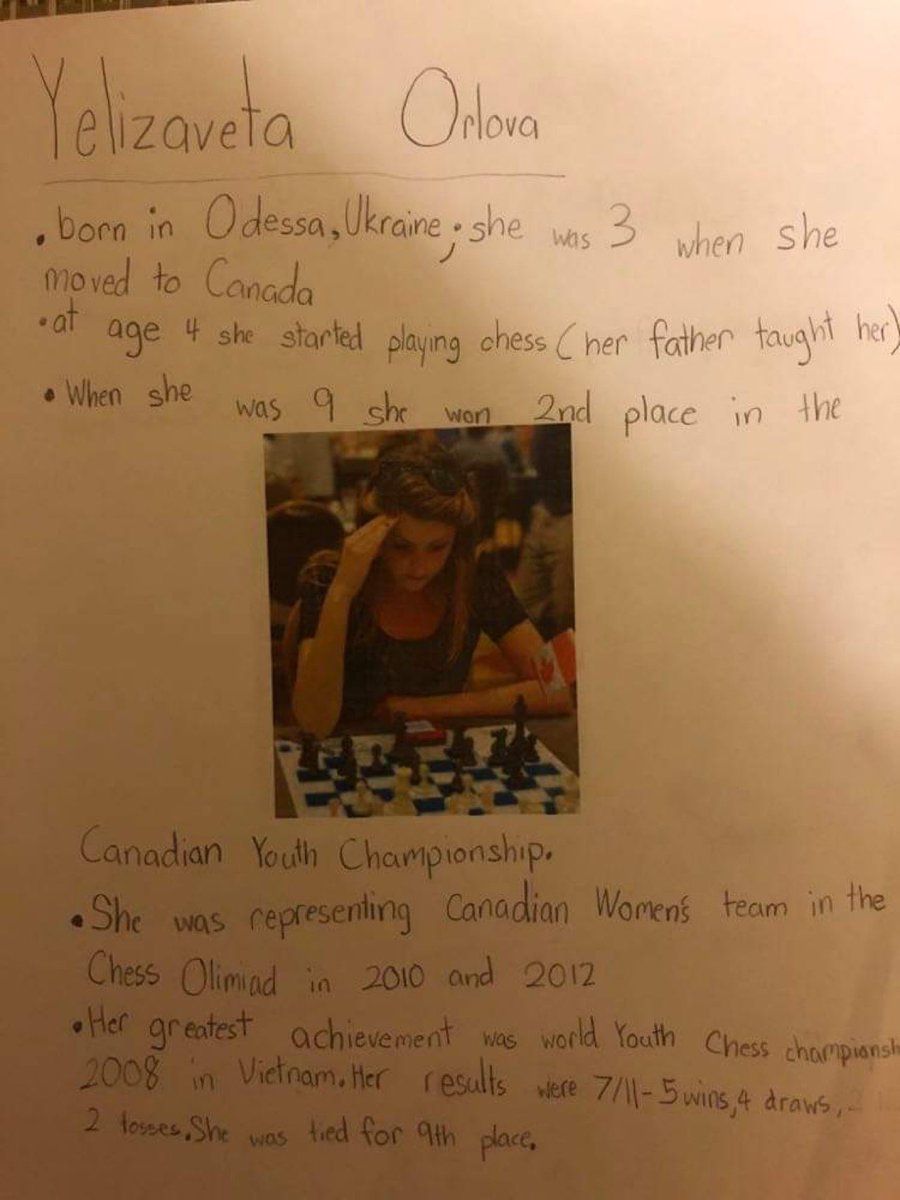 Yelizaveta Orlova
• born in Odessa, Ukraine; she was 3 when she
moved to Canada
• at age 4 she started playing chess (her father taught her)
• When she was 9 she won 2nd place in the
Canadian Youth Championship.
• She was representing Canadian Women's team in the
Chess Olimiad in 2010 and 2012
• Her greatest achievement was world Youth Chess championsh
2008 in Vietnam. Her results were 7/11 - 5 wins, 4 draws,
2 losses. She was tied for 9th place.